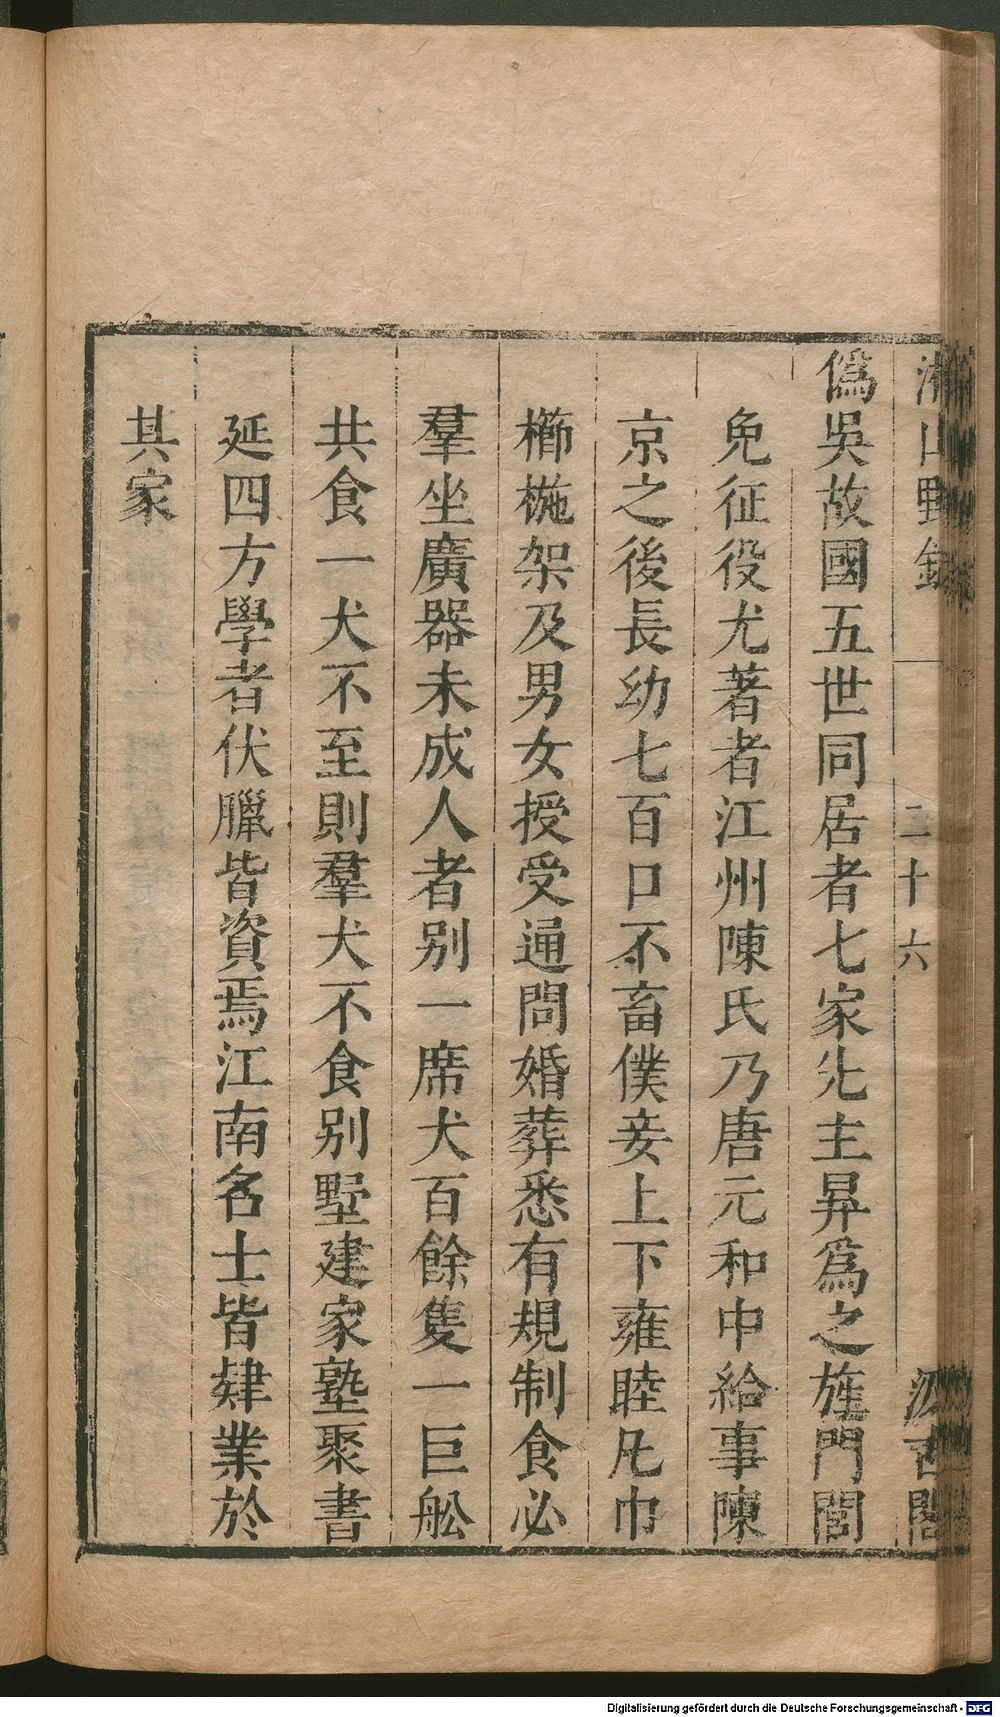 湘山野錄 二十六 汲古閣
僞吳故國五世同居者七家先主昪爲之旌門閭
免征役尤著者江州陳氏乃唐元和中給事陳
京之後長幼七百口不畜僕妾上下雍睦凡巾
櫛椸架及男女授受通問婚葬悉有規制食必
羣坐廣器未成人者别一席犬百餘隻一巨舩
共食一犬不至則羣犬不食别墅建家塾聚書
延四方學者伏臘皆資焉江南名士皆肄業於
其家
Digitalisierung gefördert durch die Deutsche Forschungsgemeinschaft - DFG